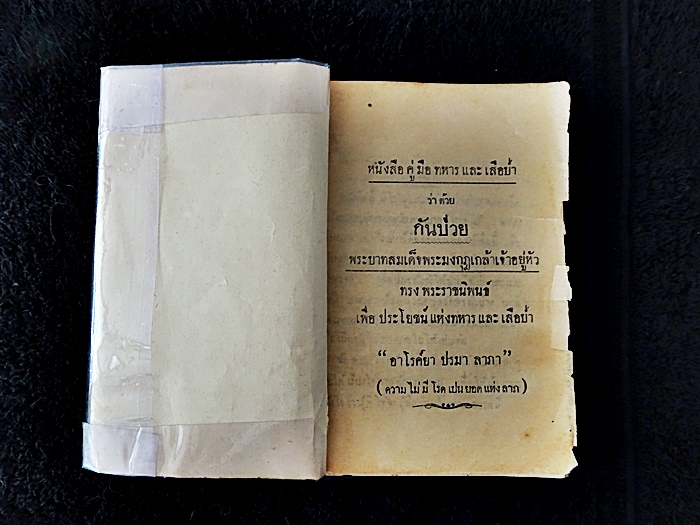 หนังสือ คู่ มือ ทหาร และ เสือป่า
ว่า ด้วย
กันป่วย
พระบาทสมเด็จพระมงกุฎเกล้าเจ้าอยู่หัว
ทรง พระราชนิพนธ์
เพื่อ ประโยชน์ แห่งทหาร และ เสือป่า
“ อาโรค์ยา ปรมา ลาภา ”
( ความ ไม่ มี โรค เปน ยอด แห่ง ลาภ )